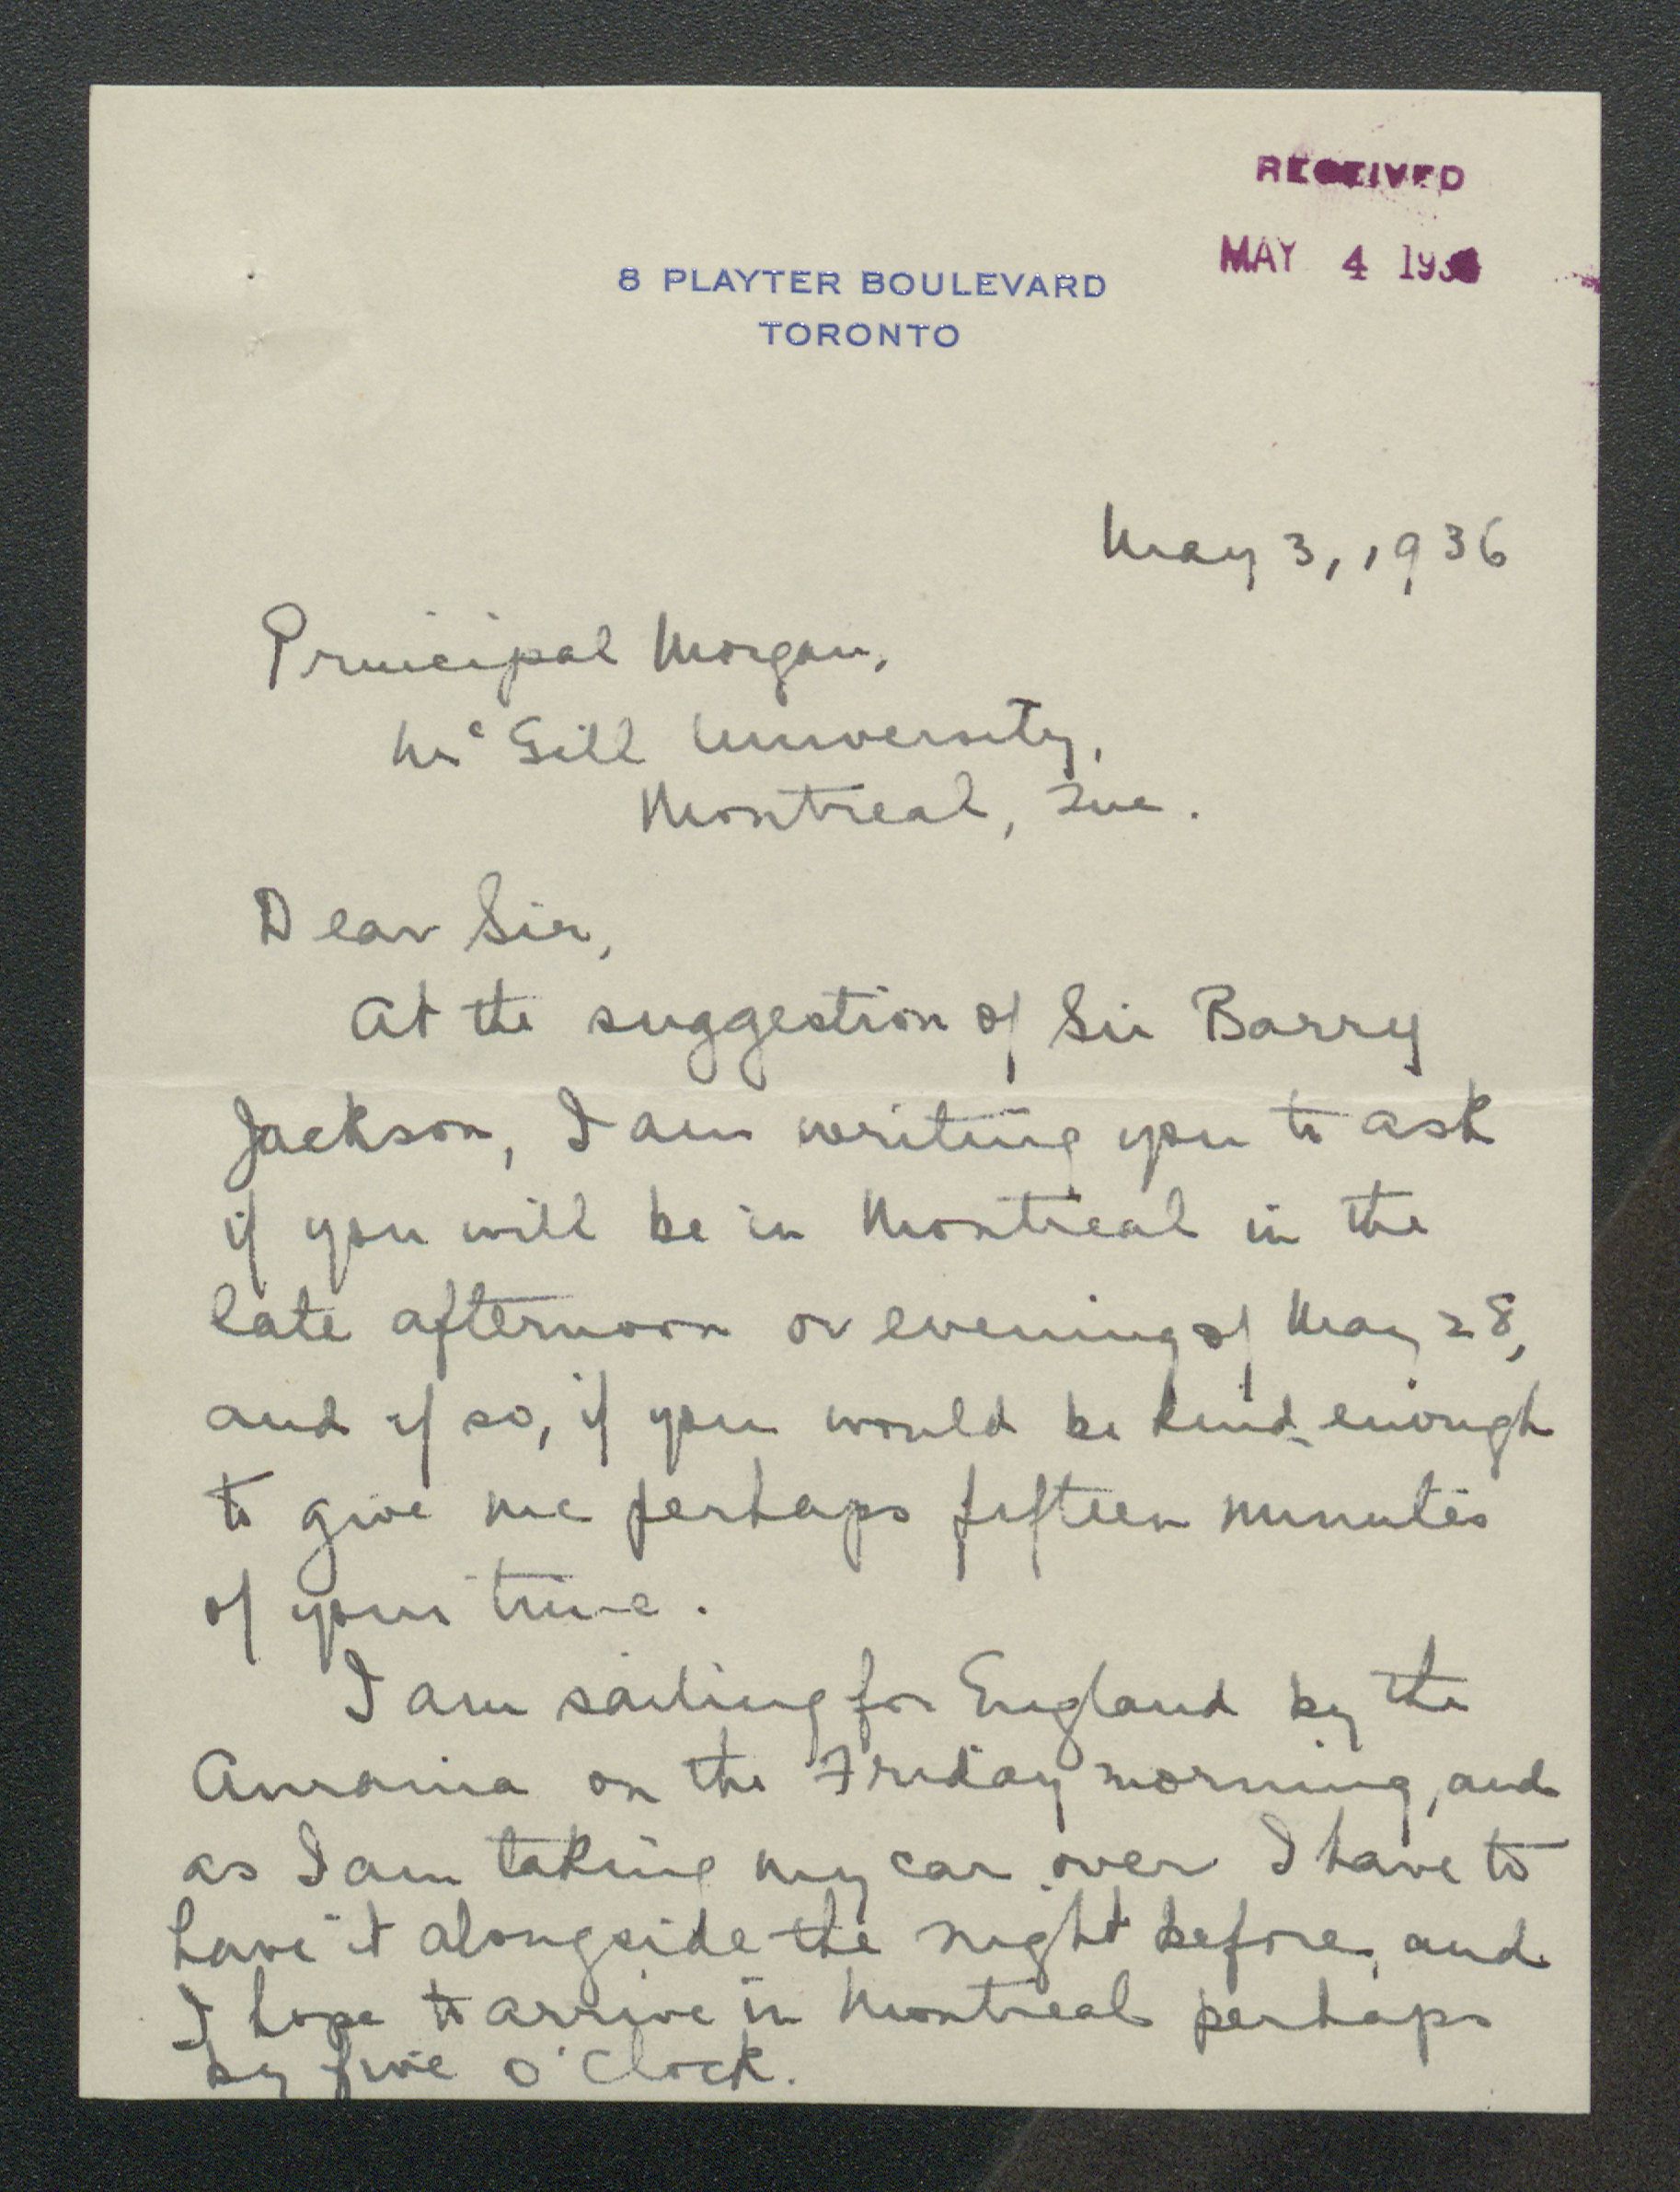 RECEIVED
MAY 4 1936
8 PLAYTER BOULEVARD
TORONTO
May 3, 1936
Principal Morgan,
McGill University,
Montreal, Que.
Dear Sir,
At the suggestion of Sir Barry
Jackson, I am writing you to ask
if you will be in Montreal in the
late afternoon or evening of May 28,
and if so, if you would be kind enough
to give me perhaps fifteen minutes
of your time.
I am sailing for England by the
on the Friday morning, and
as I am taking my car over I have to
have it alongside the night before, and
I hope to arrive in Montreal perhaps
by five o'clock.